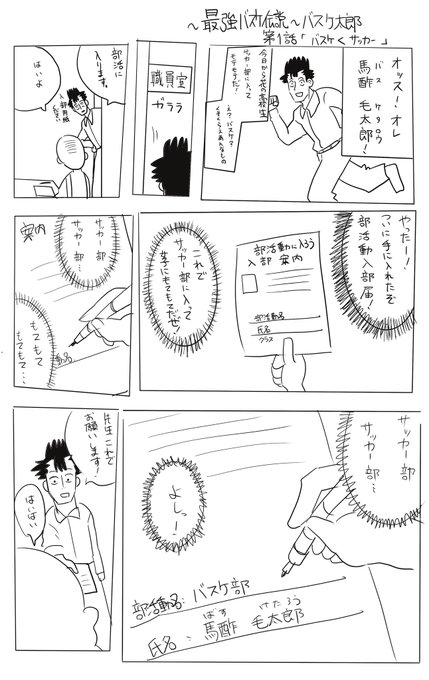 ～最強バスケ伝説～バスケ太郎
第1話「バスケ<サッカー」
オッス!オレ
馬酢 毛太郎!
バス ケタロウ
今日から花の高校生
サッカー部に入って
モテモテだ!
え?バスケ?
職員室
ガララ
部活に
入ります。
入部用紙
ください
はいよ
やったー!
ついに手に入れたぞ
部活動入部届!
部活動に入ろう
入部 案内
部活動名
氏名
クラス
これで
サッカー部に入って
女子にもてもてだぜ!
サッカー部
サッカー部…
案内
もてもて
もてもて…
動名
サッカー部
サッカー部…
よしっー!
部活動名:バスケ部
ばす けたろう
氏名:馬酢 毛太郎
先生これで
お願いします
はいはい